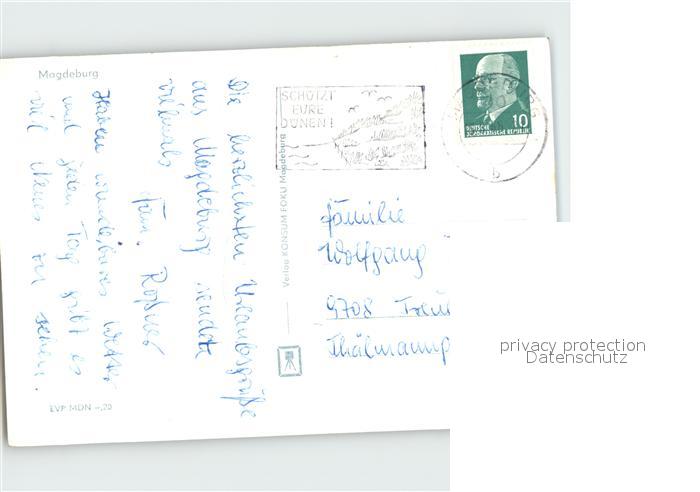 Magdeburg
Die herzlichsten Urlaubsgrüße
aus Magdeburg sendet
vielmals
Fam. Roßner
Haben wunderbares Wetter
und jeden Tag gibt es
viel Neues zu sehen.
EVP MDN -,20
Verlag KONSUM FOKU Magdeburg
SCHÜTZT
EURE
DÜNEN!
10
DEUTSCHE
DEMOKRATISCHE REPUBLIK
b
Familie
Wolfgang
9708
Thälmann
privacy protection
Datenschutz